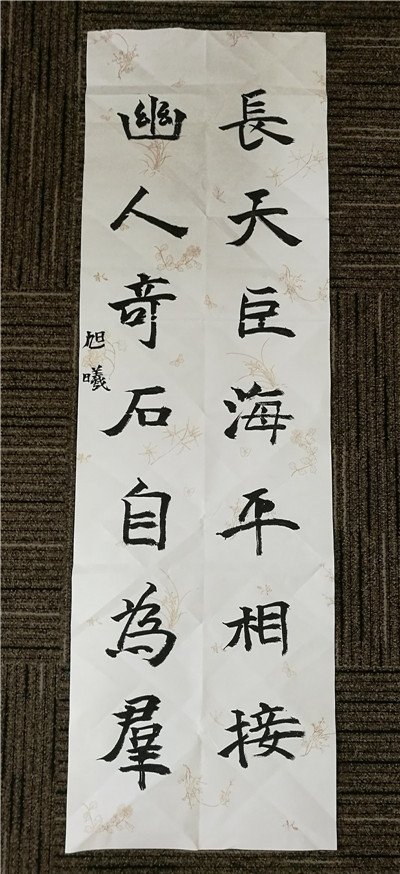 長天臣海平相接
幽人奇石自為羣
旭曦